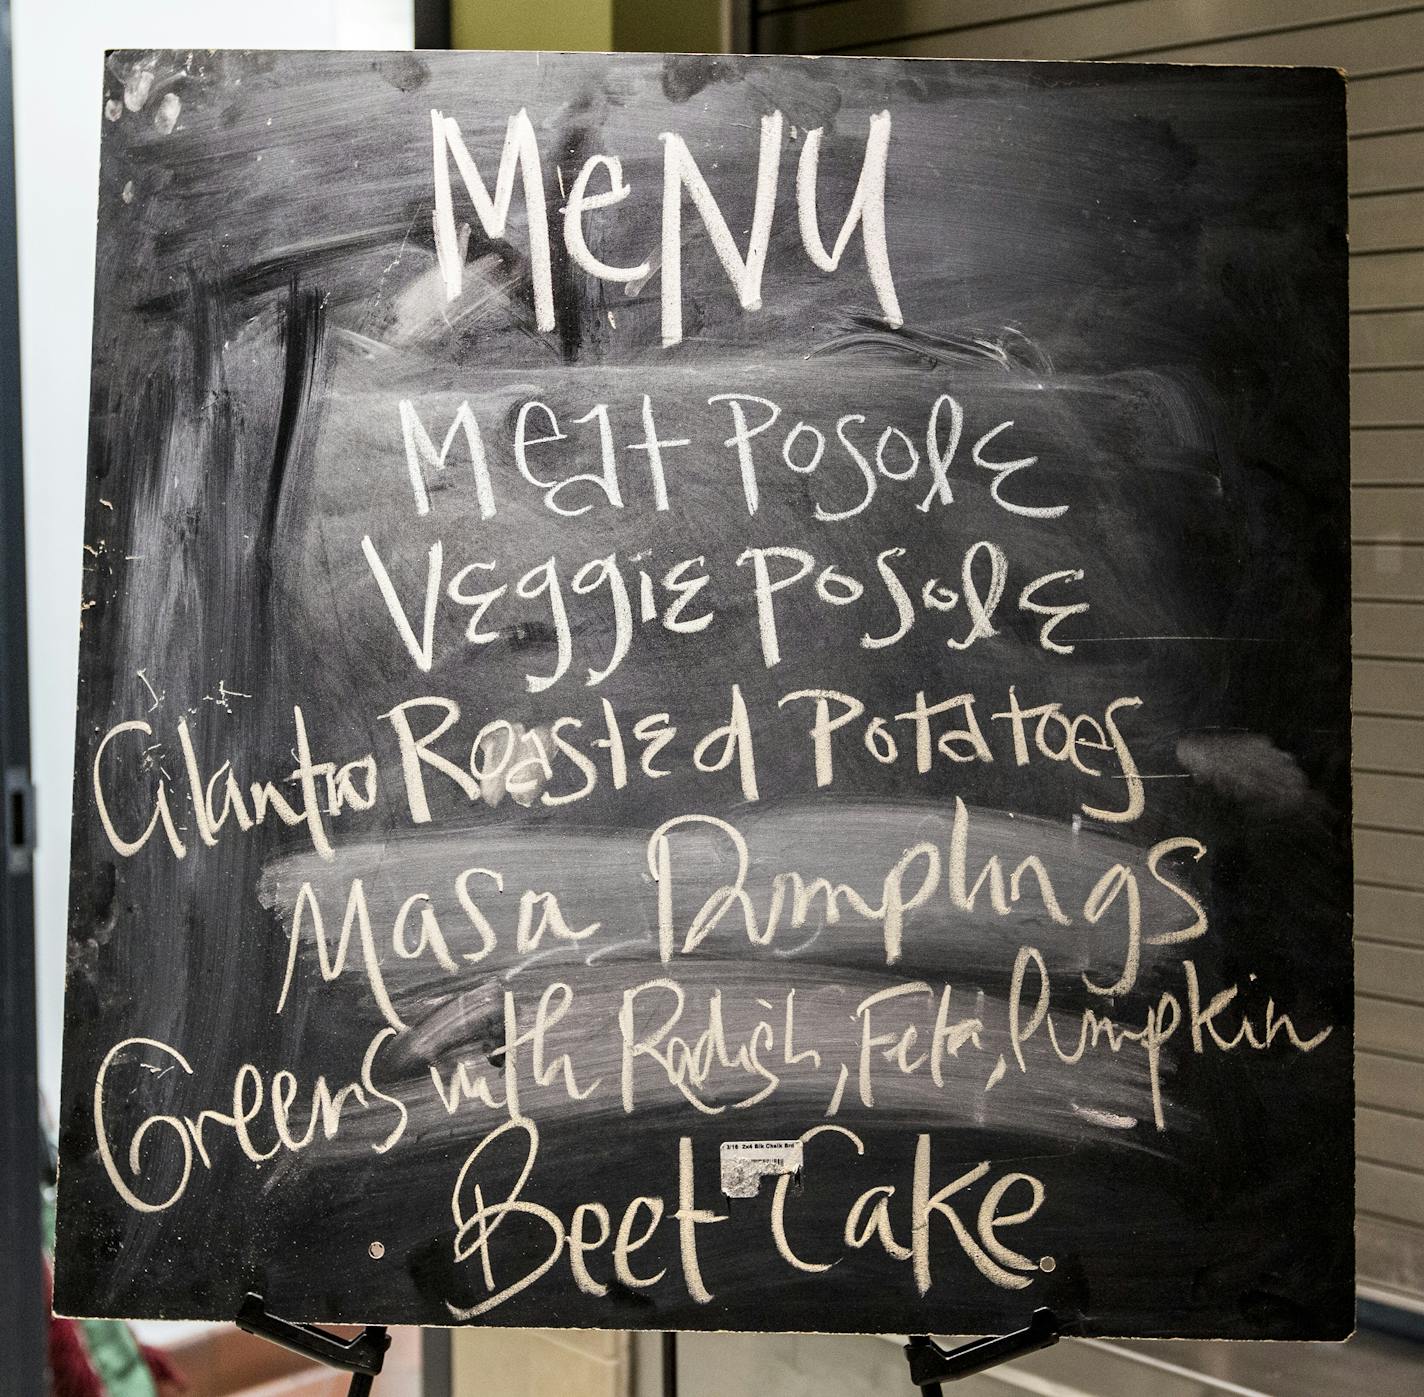 MeNU
Meat Posole
Veggie Posole
Cilantro Roasted Potatoes
Masa Dumplings
Greens with Radish, Feta, Pumpkin
Beet Cake
3/16 2x4 Blk Chalk Brd